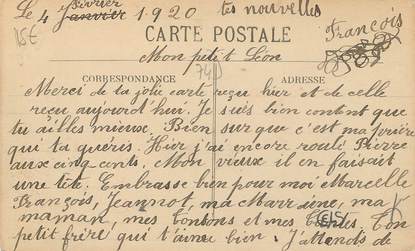 Février
Le 4 Janvier 1920 tes nouvelles
15€
François
CARTE POSTALE
Mon petit Léon
74
CORRESPONDANCE ADRESSE
Merci de ta jolie carte reçu hier et de celle
reçu aujourd'hui. Je suis bien content que
tu ailles mieux. Bien sur que c'est ma prière
qui ta guéris. Hier j'ai encore roulé Pierre
aux cinq cents. Mon vieux il en faisait
une tête. Embrasse bien pour moi Marcelle
François, Jeannot, ma Marraine, ma
maman, mes tontons et mes tantes. Ton
petit frère qui t'aime bien. J'attends de